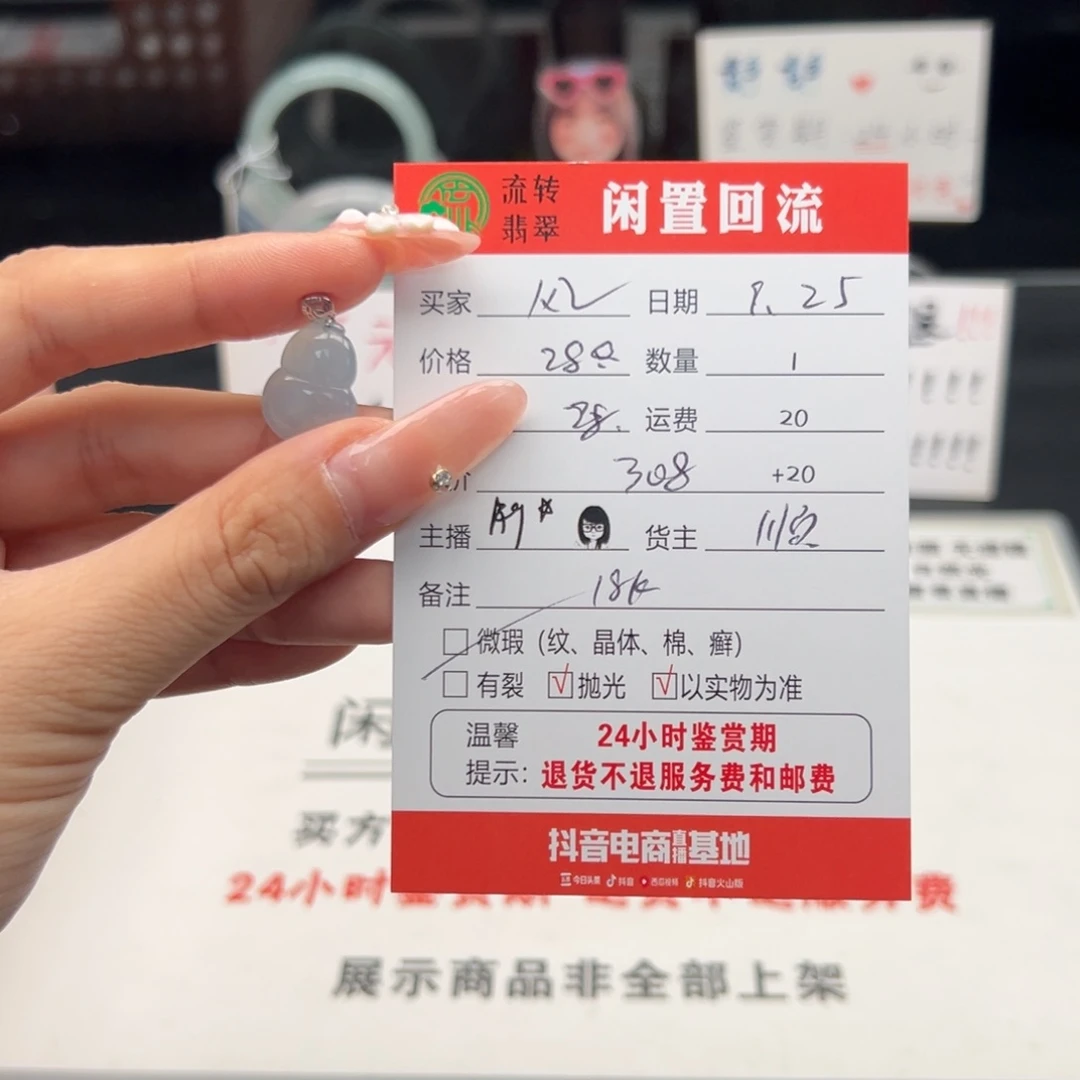 流转
翡翠
闲置回流
买家 日期 9.25
价格 280 数量 1
28. 运费 20
价 308 +20
主播 货主
备注 18k
□微瑕（纹、晶体、棉、癣）
□有裂 ☑抛光 ☑以实物为准
温馨
提示：
24小时鉴赏期
退货不退服务费和邮费
抖音电商直播基地
今日头条 抖音 西瓜视频 抖音火山版
闲
买方
24小时鉴赏期 退货不退服务费
展示商品非全部上架